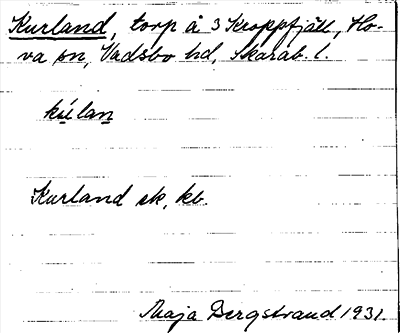 Kurland, torp å 3 Kroppfjäll, Ho-
va sn, Vadsbo hd, Skarab. l.
kúlan
Kurland sk, kb.
Maja Bergstrand 1931.